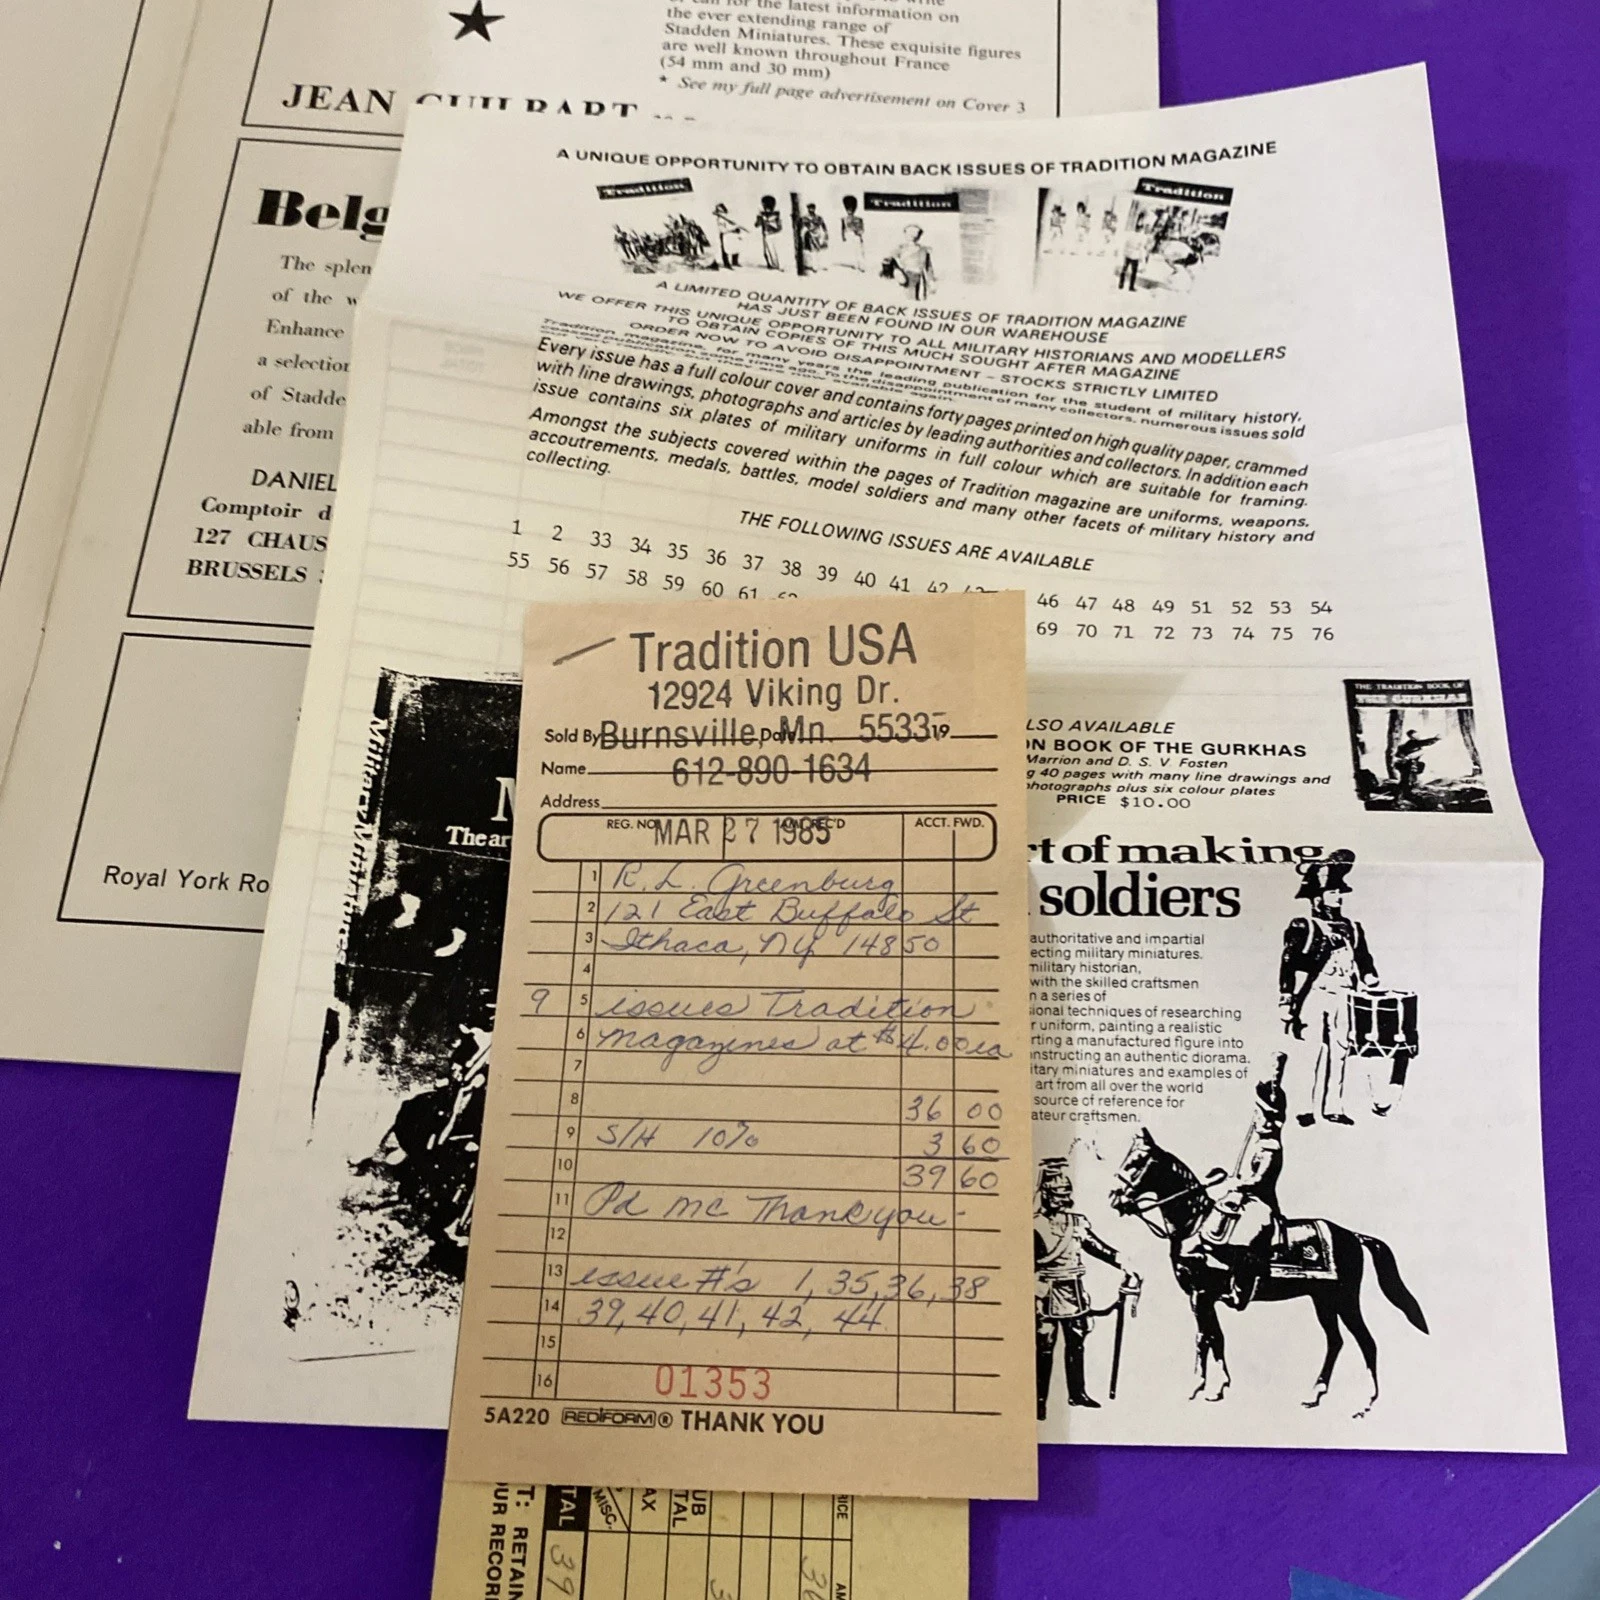 the latest information on
the ever extending range of
Stadden Miniatures. These exquisite figures
are well known throughout France
(54 mm and 30 mm)
* See my full page advertisement on Cover 3
JEAN
Belg
The splen
of the w
Enhance
a selection
of Stadde
able from
DANIEL
Comptoir d
127 CHAUS
BRUSSELS
Royal York Ro
A UNIQUE OPPORTUNITY TO OBTAIN BACK ISSUES OF TRADITION MAGAZINE
Tradition
Tradition
Tradition
A LIMITED QUANTITY OF BACK ISSUES OF TRADITION MAGAZINE
HAS JUST BEEN FOUND IN OUR WAREHOUSE
WE OFFER THIS UNIQUE OPPORTUNITY TO ALL MILITARY HISTORIANS AND MODELLERS
TO OBTAIN COPIES OF THIS MUCH SOUGHT AFTER MAGAZINE
ORDER NOW TO AVOID DISAPPOINTMENT – STOCKS STRICTLY LIMITED
Tradition magazine, for many years the leading publication for the student of military history,
ceased publication some time ago. To the disappointment of many collectors, numerous issues sold
Every issue has a full colour cover and contains forty pages printed on high quality paper, crammed
with line drawings, photographs and articles by leading authorities and collectors. In addition each
issue contains six plates of military uniforms in full colour which are suitable for framing.
Amongst the subjects covered within the pages of Tradition magazine are uniforms, weapons,
accoutrements, medals, battles, model soldiers and many other facets of military history and
collecting.
THE FOLLOWING ISSUES ARE AVAILABLE
1 2 33 34 35 36 37 38 39 40 41 42 46 47 48 49 51 52 53 54
55 56 57 58 59 60 61 69 70 71 72 73 74 75 76
LSO AVAILABLE
ON BOOK OF THE GURKHAS
Marrion and D. S. V. Fosten
g 40 pages with many line drawings and
hotographs plus six colour plates
PRICE $10.00
THE TRADITION BOOK OF
THE GURKHAS
Military Miniatures
M
The ar
rt of making
soldiers
authoritative and impartial
ecting military miniatures.
military historian,
with the skilled craftsmen
n a series of
ional techniques of researching
r uniform, painting a realistic
rting a manufactured figure into
nstructing an authentic diorama.
itary miniatures and examples of
art from all over the world
source of reference for
ateur craftsmen.
Tradition USA
12924 Viking Dr.
Sold By Burnsville, Mn. 5533 19
Name 612-890-1634
Address
REG. NO. AMT. REC'D ACCT. FWD.
MAR 27 1985
1 R. L. Greenburg
2 121 East Buffalo St
3 Ithaca, NY 14850
4
9 5 issues Tradition
6 magazines at $4.00 ea
7
8 36 00
9 S/H 10% 3 60
10 39 60
11 Pd MC Thank you -
12
13 issue #'s 1, 35, 36, 38
14 39, 40, 41, 42, 44
15
16 01353
5A220 REDIFORM® THANK YOU
T: RETAIN
UR RECOR
TAL
39
MISC.
AX
UB
TAL
3
RICE
AM
36